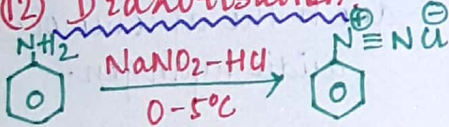 (12) Diazotisation
NH2 NaNO2-HCl N⊕≡N Cl⊖
0-5°C